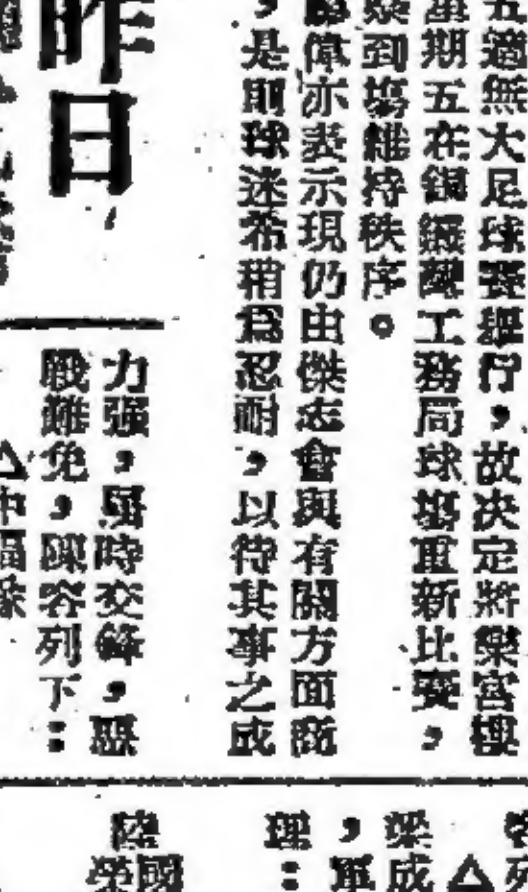 五適無大足球賽舉行，故决定將樂宮樓
星期五在銅鑼灣工務局球塲重新比賽，
到塲維持秩序。
偉亦表示現仍由傑志會與有關方面商
，是則球迷希稍爲忍耐，以待其事之成
昨日
力强，屆時交鋒，
戰難免，陳容列下：
△中
梁成
，軍
理：
陸國
榮